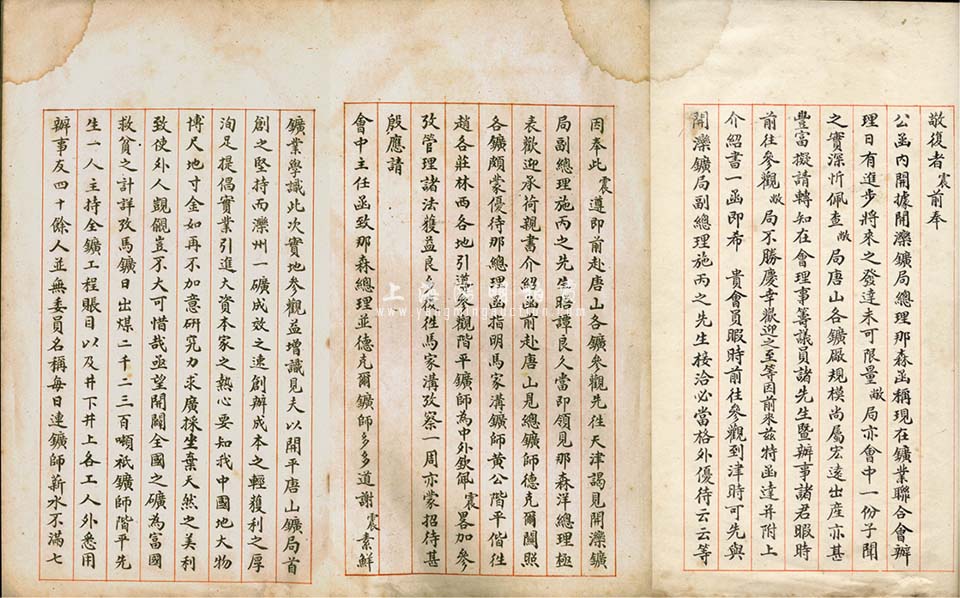 敬復者震前奉
公函內開據開灤鑛局總理那森函稱現在鑛業聯合會辦
理日有進步將來之發達未可限量敝局亦會中一份子聞
之實深忻佩查敝局唐山各鑛廠規模尚屬宏遠出產亦甚
豐富擬請轉知在會理事籌議員諸先生暨辦事諸君暇時
前往參觀敝局不勝慶幸歡迎之至等因前來茲特函達并附上
介紹書一函即希 貴會員暇時前往參觀到津時可先與
開灤鑛局副總理施丙之先生接洽必當格外優待云云等
因奉此震遵即前赴唐山各鑛參觀先往天津謁見開灤鑛
局副總理施丙之先生晤譚良久當即領見那森洋總理極
表歡迎承荷親書介紹函前赴唐山見總鑛師德克爾關照
各鑛頗蒙優待那總理函指明馬家溝鑛師黃公階平偕往
趙各莊林西各地引導參觀階平鑛師為中外欽佩震畧加參
攷管理諸法獲益良多復徃馬家溝攷察一周亦蒙招待甚
殷應請
會中主任函致那森總理並德克爾鑛師多多道謝震素鮮
鑛業學識此次實地參觀益增識見夫以開平唐山鑛局首
創之堅持而灤州一礦成效之速創辦成本之輕獲利之厚
洵足提倡實業引進大資本家之熱心要知我中國地大物
博尺地寸金如再不加意研究力求廣採坐棄天然之美利
致使外人覬覦豈不大可惜哉亟望開闢全國之礦為富國
救貧之計詳攷馬鑛日出煤二千二三百噸祇鑛師階平先
生一人主持全鑛工程賬目以及井下井上各工人外悉用
辦事友四十餘人並無委員名稱每日連鑛師薪水不滿七
上海
www.yangmingauction.com